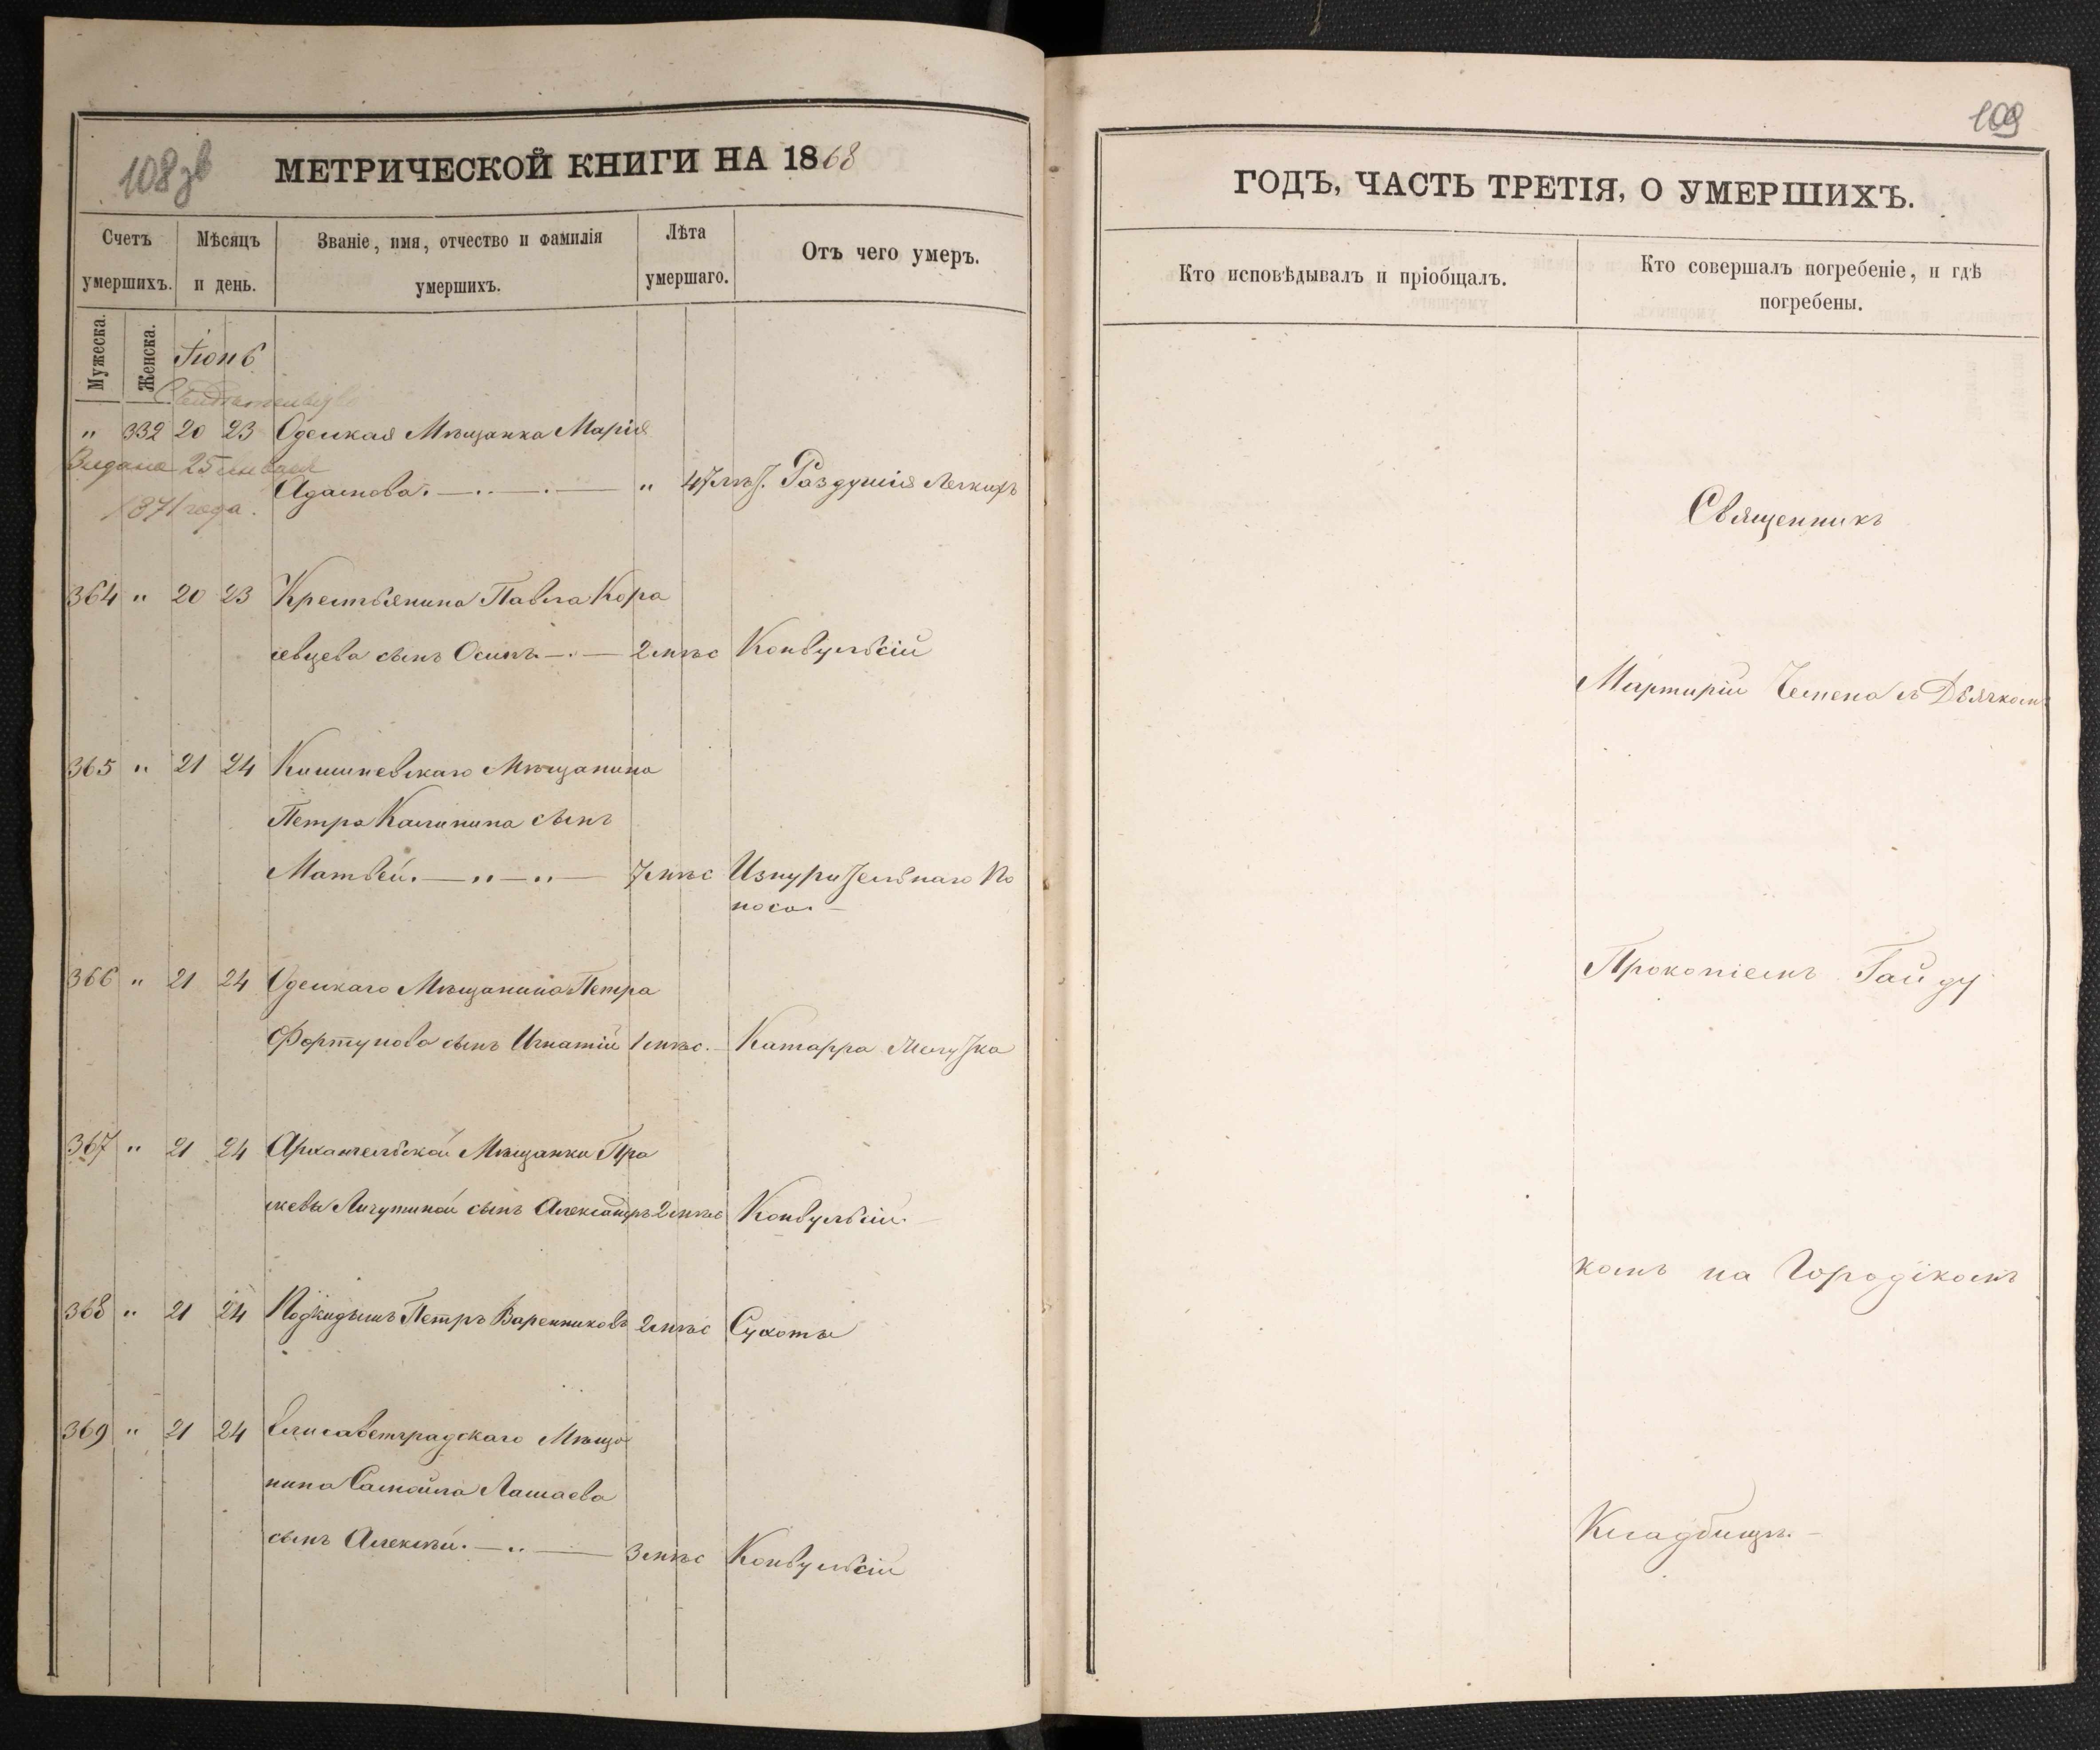 108 зв
МЕТРИЧЕСКОЙ КНИГИ НА 1868
Счетъ умершихъ.
Мѣсяцъ и день.
Званіе, имя, отчество и фамилія умершихъ.
Лѣта умершаго.
Отъ чего умеръ.
Мужеска.
Женска.
Іюнь
" 332 20 23 Одеская Мѣщанка Марія
Выдана 25 января
Адамова. " 47 лѣт. Раздутія Легкихъ
1871 года.
364 " 20 23 Крестьянина Павла Кора
севцева сынъ Осипъ 2 мѣс Конвульсій
365 " 21 24 Кишиневскаго Мѣщанина
Петра Калинина сынъ
Матвѣй. 7 мѣс Изнурительнаго По
носа.
366 " 21 24 Одескаго Мѣщанина Петра
Фортунова сынъ Игнатій 1 мѣс. Катарра Желудка
367 " 21 24 Архангельской Мѣщанки Пра
сковьи Личутиной сынъ Александръ 2 мѣс Конвульсій.
368 " 21 24 Подкидышъ Петръ Варенниковъ 2 мѣс Сухоты
369 " 21 24 Елисаветградскаго Мѣща
нина Самойла Лашаева
сынъ Алексѣй. 3 мѣс Конвульсій
109
ГОДЪ, ЧАСТЬ ТРЕТІЯ, О УМЕРШИХЪ.
Кто исповѣдывалъ и пріобщалъ.
Кто совершалъ погребеніе, и гдѣ погребены.
Священникъ
Мартирій Чемена съ Дьячкомъ
Прокопіемъ Гайду
комъ на Городскомъ
Кладбищѣ.